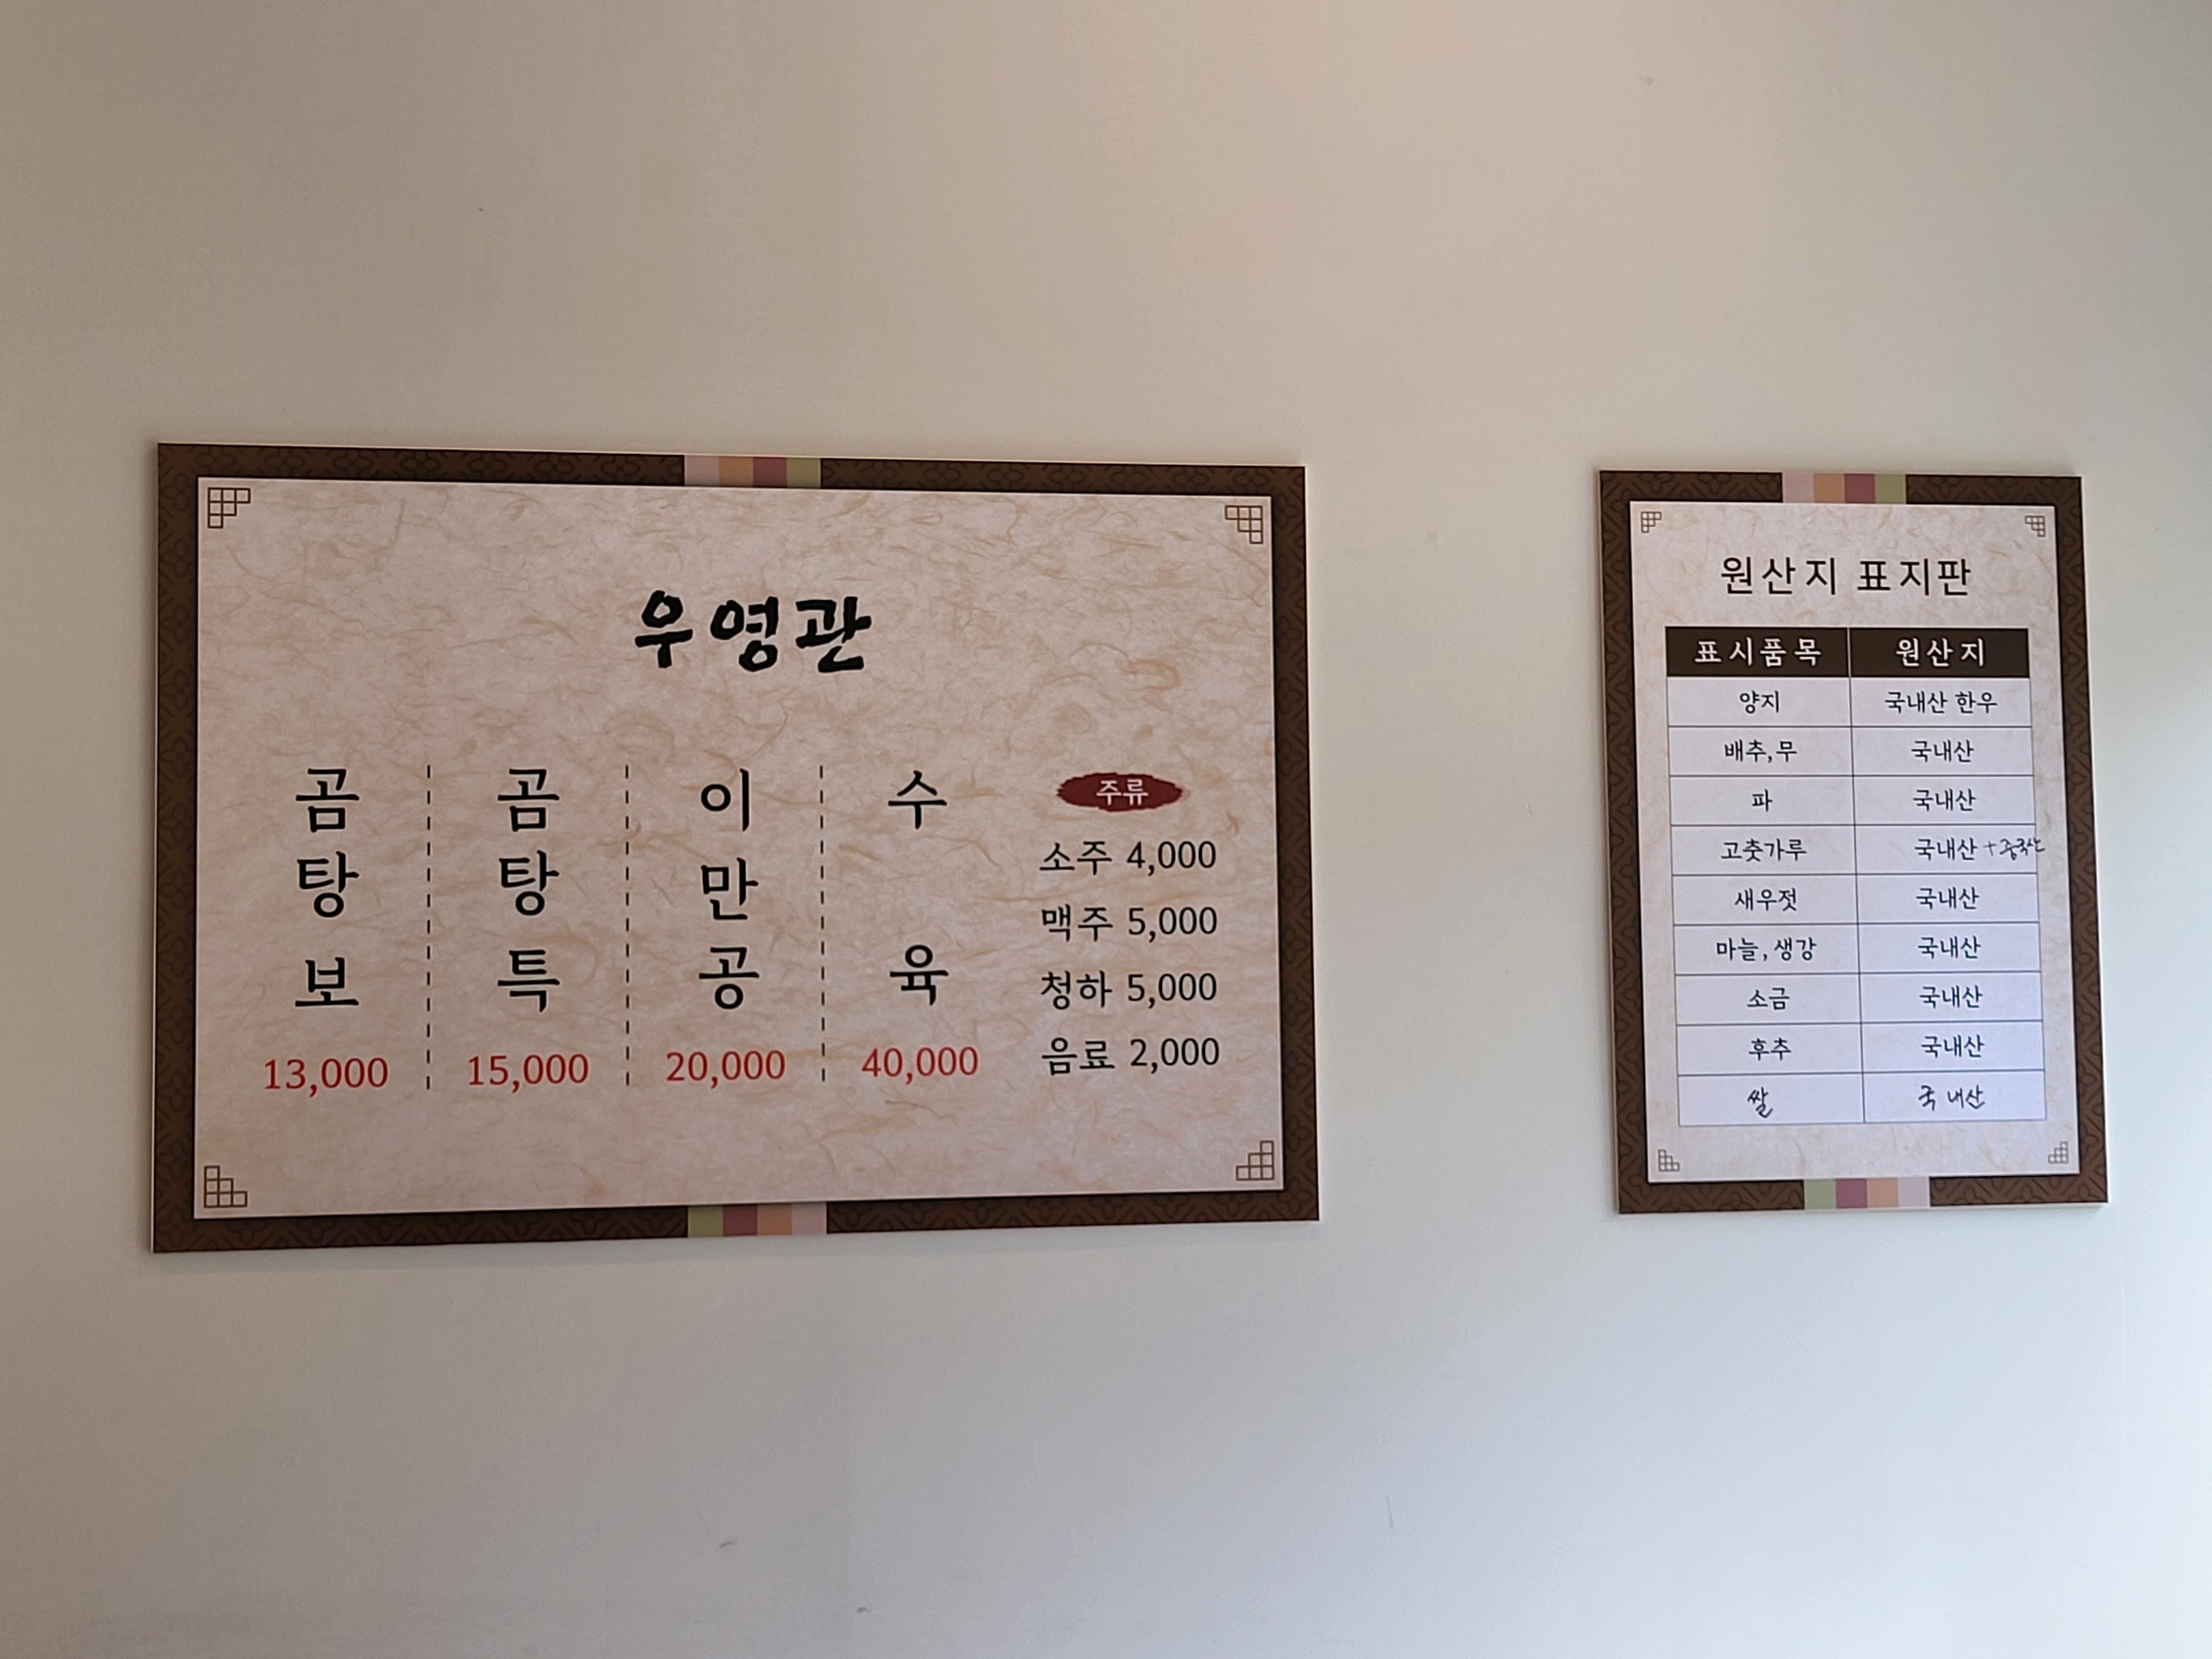 우영관
곰탕보 13,000
곰탕특 15,000
이만공 20,000
수육 40,000
주류
소주 4,000
맥주 5,000
청하 5,000
음료 2,000
원산지 표지판
표시품목 원산지
양지 국내산 한우
배추,무 국내산
파 국내산
고춧가루 국내산 + 중국산
새우젓 국내산
마늘,생강 국내산
소금 국내산
후추 국내산
쌀 국내산